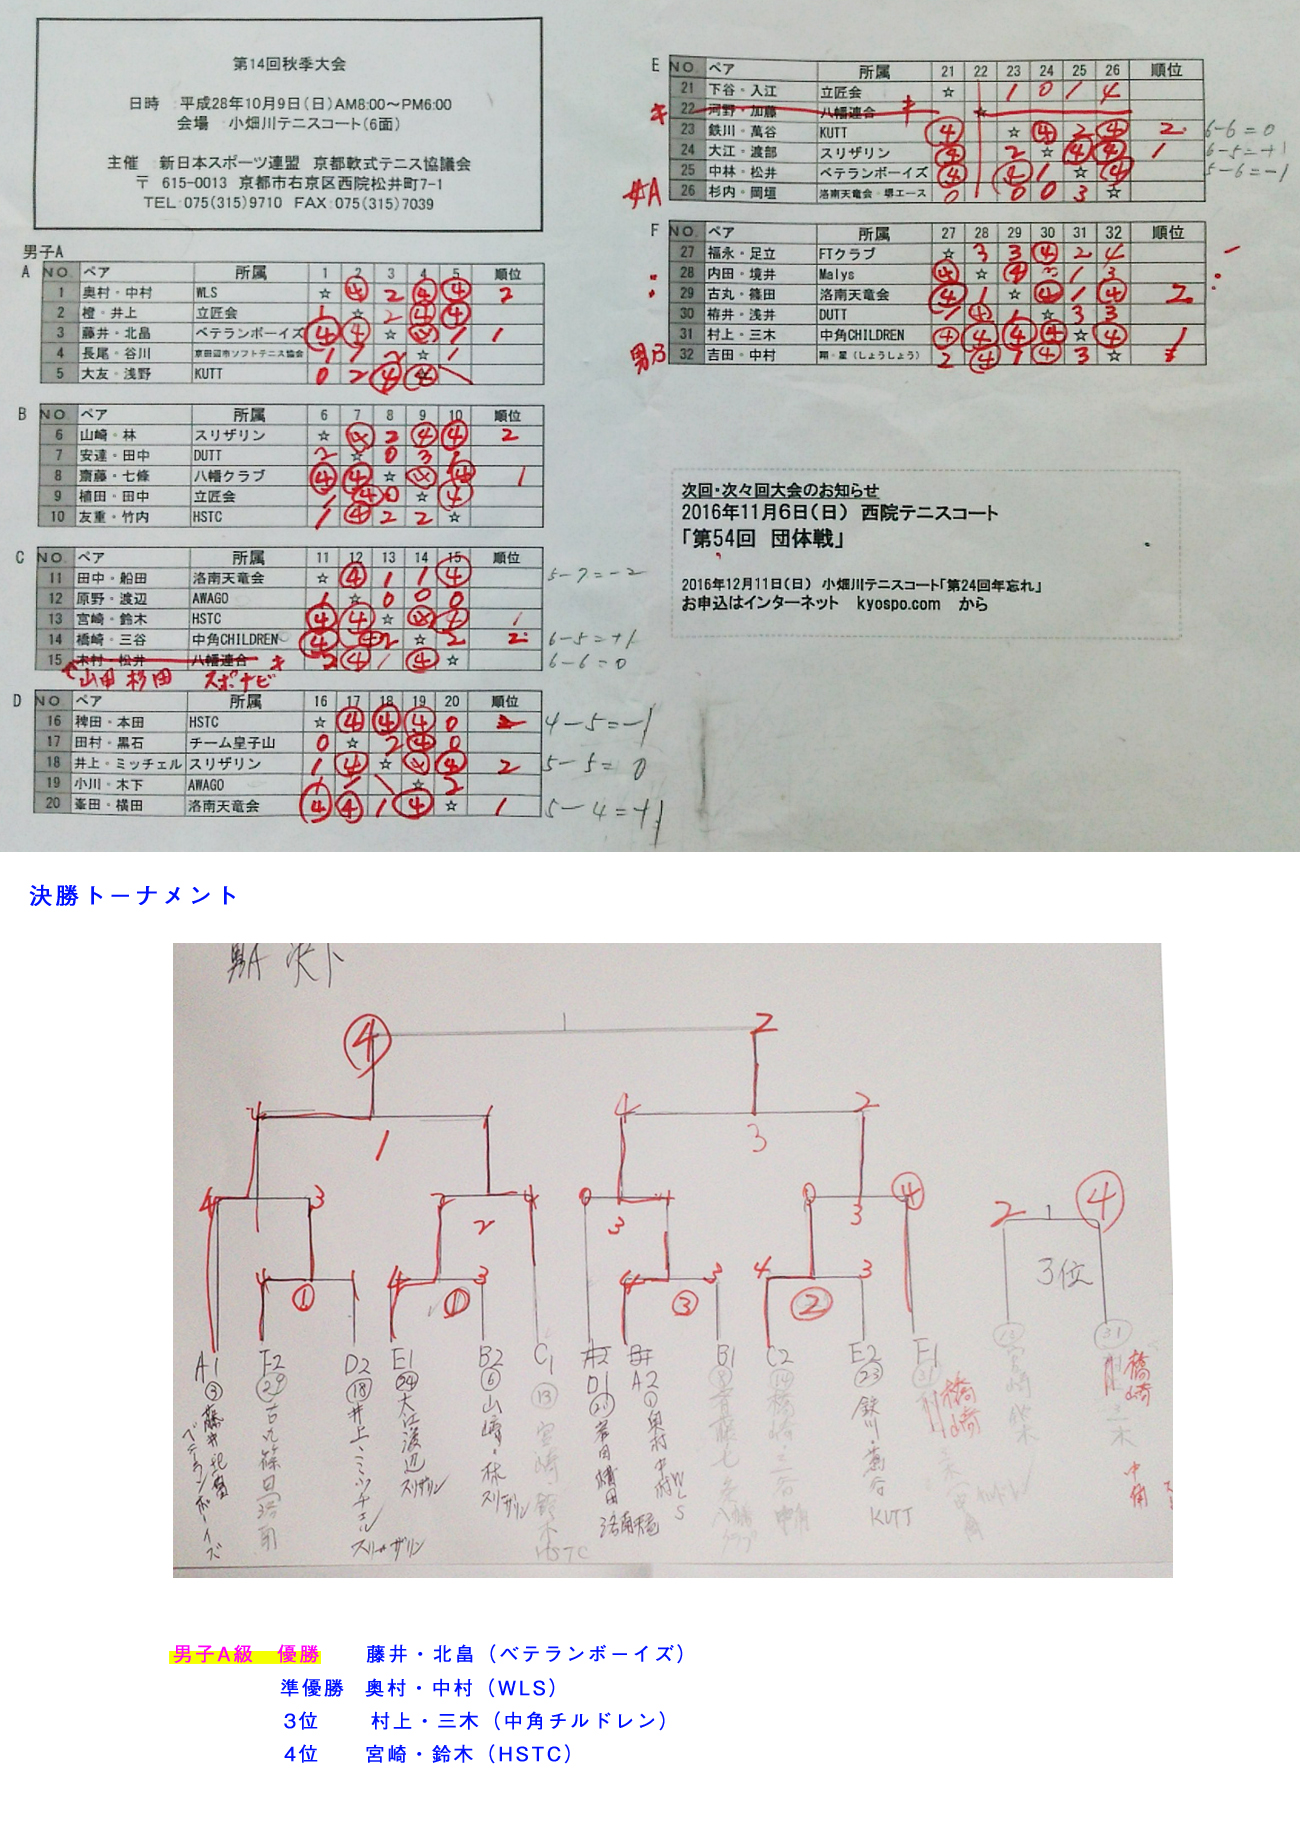 第14回秋季大会
日時　平成28年10月9日(日)AM8:00～PM6:00
会場　小畑川テニスコート(6面)
主催　新日本スポーツ連盟　京都軟式テニス協議会
〒 615-0013 京都市右京区西院松井町7-1
TEL:075(315)9710 FAX:075(315)7039
男子A
A NO. ペア 所属 1 2 3 4 5 順位
1 奥村・中村 WLS ☆ ④ 2 ④ ④ 2
2 橙・井上 立匠会 1 ☆ 2 ④ ④
3 藤井・北畠 ベテランボーイズ ④ ④ ☆ 1 1
4 長尾・谷川 京田辺市ソフトテニス協会 1 2 ☆ 1
5 大友・浅野 KUTT 0 2 ④ ④
B NO. ペア 所属 6 7 8 9 10 順位
6 山崎・林 スリザリン ☆ 2 ④ ④ 2
7 安達・田中 DUTT 2 ☆ 0 3 1
8 齋藤・七條 八幡クラブ ④ ④ ☆ ④ 1
9 植田・田中 立匠会 1 ④ 0 ☆ ④
10 友重・竹内 HSTC 1 ④ 2 2 ☆
C NO. ペア 所属 11 12 13 14 15 順位
11 田中・船田 洛南天竜会 ☆ ④ 1 1 ④ 5-7=-2
12 原野・渡辺 AWAGO 1 ☆ 0 0 0
13 宮崎・鈴木 HSTC ④ ④ ☆ 1
14 橋崎・三谷 中角CHILDREN ④ ④ 2 ☆ 2 2 6-5=+1
15 木村・松井 八幡連合 キ 2 ④ 1 ④ ☆ 6-6=0
山田 杉田 スポナビ
D NO. ペア 所属 16 17 18 19 20 順位
16 稗田・本田 HSTC ☆ ④ ④ ④ 0 4-5=-1
17 田村・黒石 チーム皇子山 0 ☆ 2 ④ 0
18 井上・ミッチェル スリザリン 1 ④ ☆ ④ 2 5-5=0
19 小川・木下 AWAGO ☆ 2
20 峯田・横田 洛南天竜会 ④ ④ 1 ④ ☆ 1 5-4=+1
E NO. ペア 所属 21 22 23 24 25 26 順位
21 下谷・入江 立匠会 ☆ 1 0 1 4
キ 22 河野・加藤 八幡連合 キ ☆
23 鉄川・萬谷 KUTT ④ ☆ ④ 2 ④ 2 6-6=0
24 大江・渡部 スリザリン ④ 2 ☆ ④ ④ 1 6-5=+1
25 中林・松井 ベテランボーイズ ④ ④ 1 ☆ ④ 5-6=-1
26 杉内・岡垣 洛南天竜会・堺エース 0 0 0 3 ☆
F NO. ペア 所属 27 28 29 30 31 32 順位
27 福永・足立 FTクラブ ☆ 3 3 ④ 2 4
28 内田・境井 Malys ④ ☆ ④ 1 3
29 古丸・篠田 洛南天竜会 ④ 1 ☆ ④ 1 ④ 2
30 栫井・浅井 DUTT 1 ④ 1 ☆ 3 3
31 村上・三木 中角CHILDREN ④ ④ ④ ④ ☆ ④ 1
男B 32 吉田・中村 翔・星（しょうしょう） 2 ④ 1 ④ 3 ☆
次回・次々回大会のお知らせ
2016年11月6日(日)　西院テニスコート
「第54回　団体戦」
2016年12月11日(日)　小畑川テニスコート「第24回年忘れ」
お申込はインターネット　kyospo.com　から
決勝トーナメント
男A 決ト
④ 1 2
4 1 1 4 3 2
4 3 2 2 4 0 3 4 0 3 ④ 2 1 ④
4 ① 1 4 ① 3 4 ③ 3 4 ② 3 3位
A1 F2 D2 E1 B2 C1 D1 A2 B1 C2 E2 F1
③ 藤井 北畠 ベテランボーイズ
㉙ 古丸 篠田 洛南
⑱ 井上・ミッチェル スリザリン
㉔ 大江渡辺 スリザリン
⑥ 山崎・林 スリザリン
⑬ 宮崎・鈴木 HSTC
横田 洛南天竜
① 奥村 中村 WLS
⑧ 斉藤七条 八幡クラブ
⑭ 橋崎・三谷 中角
㉓ 鉄川・萬谷 KUTT
㉛ 橋崎
⑬ 宮崎 鈴木
㉛ 橋崎 三木 中角
男子A級　優勝　藤井・北畠（ベテランボーイズ）
準優勝　奥村・中村（WLS）
3位　村上・三木（中角チルドレン）
4位　宮崎・鈴木（HSTC）